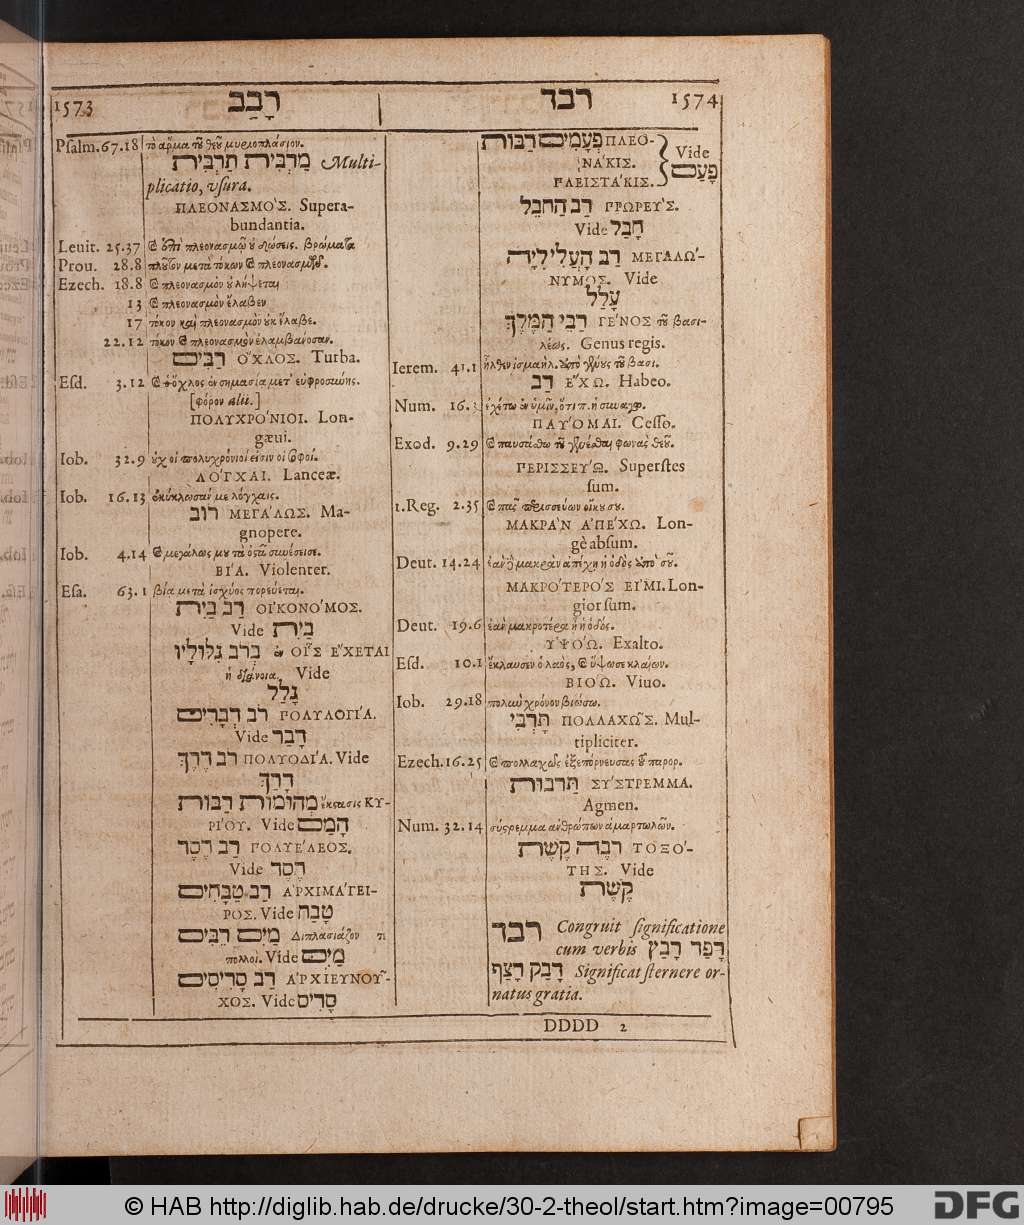 1573 רָבַב
רבד 1574
Psalm. 67.18 τὸ ἅρμα τοῦ θεοῦ μυριοπλάσιον.
מַרְבִּית תַּרְבִּית Multi-
plicatio, vsura.
ΠΛΕΟΝΑΣΜΟ'Σ. Supera-
bundantia.
Leuit. 25.37 πλεονασμῷ οὐ δώσεις. βρώματα
Prou. 28.8 πλοῦτον μετὰ τόκων πλεονασμῶν.
Ezech. 18.8 πλεονασμὸν οὐ λήψεται
13 πλεονασμὸν ἔλαβεν
17 τόκον καὶ πλεονασμὸν οὐκ ἔλαβε.
22.12 τόκον πλεονασμὸν ἐλαμβάνοσαν.
רַבִּים ΟΥ῎ΧΛΟΣ. Turba.
Esd. 3.12 ὄχλος ἐν σημασία μετ' εὐφροσύνης.
[φόρον alii.]
ΠΟΛΥΧΡΟ'ΝΙΟΙ. Lon-
gæui.
Iob. 32.9 οὐχ οἱ πολυχρόνιοί εἰσιν οἱ σοφοί.
ΛΟ'ΓΧΑΙ. Lanceæ.
Iob. 16.13 ἐκύκλωσάν με λόγχαις.
רוב ΜΕΓΑ'ΛΩΣ. Ma-
gnopere.
Iob. 4.14 μεγάλως μου τὰ ὀστᾶ συνέσεισε.
ΒΙ'Α. Violenter.
Esa. 63.1 βίᾳ μετὰ ἰσχύος πορεύεται.
רַב בַּיִת ΟΙΚΟΝΟ'ΜΟΣ.
Vide בַּיִת
בְּרֹב גִּלּוּלָיו ἐν ΟΙ῟Σ Ε῎ΧΕΤΑΙ
ἡ διάνοια. Vide
גָּלַל
רֹב דְּבָרִים ΠΟΛΥΛΟΓΙ'Α.
Vide דָּבַר
רב דֶרֶךְ ΠΟΛΥΟΔΙ'Α. Vide
דָּרַךְ
מְהוּמוֹת רַבּוֹת ἔκστασις ΚΥ-
ΡΙ'ΟΥ. Vide הָמַם
רַב חֶסֶד ΠΟΛΥΕ'ΛΕΟΣ.
Vide חֶסֶד
רַב טַבָּחִים ΑΡΧΙΜΑ'ΓΕΙ-
ΡΟΣ. Vide טָבַח
מַיִם רַבִּים Διπλασιάζον τι
πολλοί. Vide מַיִם
רַב סָרִיסִים ΑΡΧΙΕΥΝΟΥ῀-
ΧΟΣ. Vide סָרִיס
פְּעָמִים רַבּוֹת ΠΛΕΟ-
ΝΑ'ΚΙΣ.
ΠΛΕΙΣΤΑ'ΚΙΣ.
Vide
פָּעַם
רַב הַחֹבֵל ΠΡΩΡΕΥ'Σ.
Vide חָבַל
רַב הָעֲלִילִיָּה ΜΕΓΑΛΩ'-
ΝΥΜΟΣ. Vide
עָלַל
רַבֵּי הַמֶּלֶךְ ΓΕ'ΝΟΣ τοῦ βασι-
λέως. Genus regis.
Ierem. 41.1 ἦλθεν ἰσμαὴλ. ἀπὸ γένους τοῦ βασι.
רַב Ε῎ΧΩ. Habeo.
Num. 16.3 ἐχέτω ἐν ὑμῖν, ὅτι π. ἡ συναγ.
ΠΑΥ'ΟΜΑΙ. Cesso.
Exod. 9.29 παυσάσθω τοῦ γενέσθαι φωνὰς θεοῦ.
ΠΕΡΙΣΣΕΥ'Ω. Superstes
sum.
1.Reg. 2.35 πᾶς περισσεύων οἴκου σου.
ΜΑΚΡΑ'Ν ΑΠΕ'ΧΩ. Lon-
gè absum.
Deut. 14.24 ἐὰν μακρὰν ἀπέχῃ ἡ ὁδὸς ἀπὸ σοῦ.
ΜΑΚΡΟ'ΤΕΡΟ'Σ ΕΙ'ΜΙ. Lon-
gior sum.
Deut. 19.6 ἐὰν μακροτέρα ᾖ ἡ ὁδός.
ΥΨΟ'Ω. Exalto.
Esd. 10.1 ἔκλαυσεν ὁ λαὸς, ὕψωσε κλαίων.
ΒΙΟ'Ω. Viuo.
Iob. 29.18 πολὺ χρόνον βιώσω.
תָּרְבִּי ΠΟΛΛΑΧΩ῀Σ. Mul-
tipliciter.
Ezech. 16.25 πολλαχῶς ἐξεπόρνευσας παρορ.
תַּרְבּוּת ΣΥ'ΣΤΡΕΜΜΑ.
Agmen.
Num. 32.14 σύστρεμμα ἀνθρώπων ἁμαρτωλῶν.
רֹבֶה קֶשֶׁת ΤΟΞΟ'-
ΤΗΣ. Vide
קֶשֶׁת
רבד Congruit significatione
cum verbis רָבַץ רָפַד
רָצַף רָבַק Significat sternere or-
natus gratia.
DDDD 2
© HAB http://diglib.hab.de/drucke/30-2-theol/start.htm?image=00795 DFG